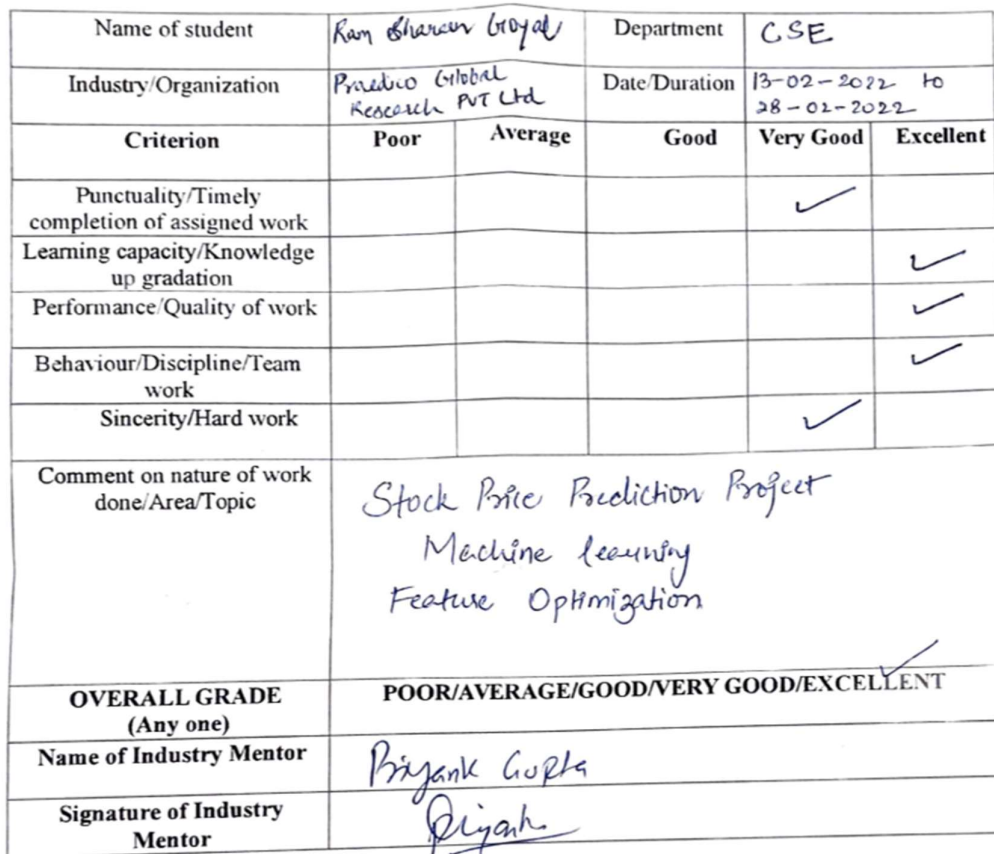 Name of student Ram Sharan Goyal Department CSE
Industry/Organization Praedico Global Research PVT Ltd Date/Duration 13-02-2022 to 28-02-2022
Criterion Poor Average Good Very Good Excellent
Punctuality/Timely
completion of assigned work ✓
Learning capacity/Knowledge
up gradation ✓
Performance/Quality of work ✓
Behaviour/Discipline/Team
work ✓
Sincerity/Hard work ✓
Comment on nature of work
done/Area/Topic
Stock Price Prediction Project
Machine learning
Feature Optimization
OVERALL GRADE
(Any one)
POOR/AVERAGE/GOOD/VERY GOOD/EXCELLENT ✓
Name of Industry Mentor Priyank Gupta
Signature of Industry
Mentor
Priyank